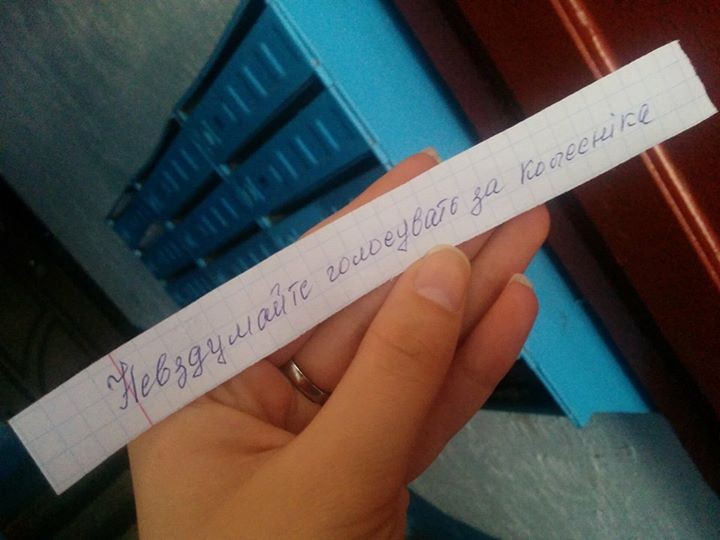 Невздумайте голосувать за Колесніка